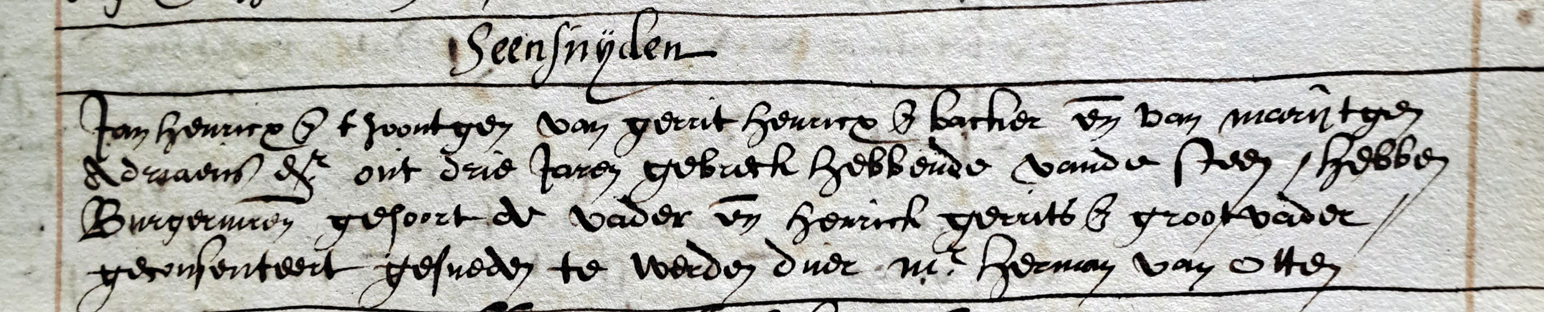 Seensnijden
Jan henricx z thoontgen van gerrit henricx z backer en̄ van marijtgen
Adriaens dr out drie Jaren gebreck hebbende vande steen / hebben
Burgermrēn gehoort de vader en̄ henrick gerrits z grootvader /
geconsenteert gesneden te werden duer mr herman van otten